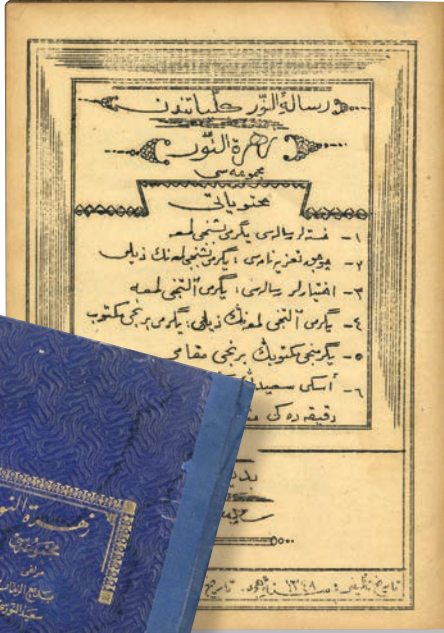 رسالهٔ النّور كلّياتندن
زهرة النّور
مجموعه سی
محتوياتی
١- خسته لر رساله سی يگرمی بشنجی لمعه
٢- چوجق تعزيه نامه سی؛ يگرمی بشنجی لمعه نك ذيلی
٣- اختيارلر رساله سی؛ يگرمی آلتنجی لمعه
٤- يگرمی آلتنجی لمعه نك ذيلی؛ يگرمی برنجی مكتوب
٥- يگرمنجی مكتوبك برنجی مقامی
٦- أسكی سعيدك
دقيقه ده كی
بديع
سعيد
تاريخ تأليفی؛ سنه ١٣٤٨
زهرة النور
مجموعه سی
مؤلفی
بديع الزمان
سعيد النورسی